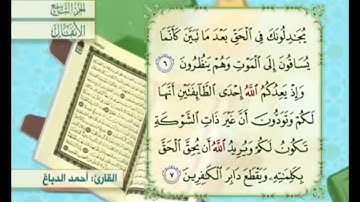 الجزء التاسع
الأنفال
يُجَٰدِلُونَكَ فِى ٱلْحَقِّ بَعْدَ مَا تَبَيَّنَ كَأَنَّمَا
يُسَاقُونَ إِلَى ٱلْمَوْتِ وَهُمْ يَنظُرُونَ ٦
وَإِذْ يَعِدُكُمُ ٱللَّهُ إِحْدَى ٱلطَّآئِفَتَيْنِ أَنَّهَا
لَكُمْ وَتَوَدُّونَ أَنَّ غَيْرَ ذَاتِ ٱلشَّوْكَةِ
تَكُونُ لَكُمْ وَيُرِيدُ ٱللَّهُ أَن يُحِقَّ ٱلْحَقَّ
بِكَلِمَٰتِهِۦ وَيَقْطَعَ دَابِرَ ٱلْكَٰفِرِينَ ٧
القارئ: أحمد الدباغ